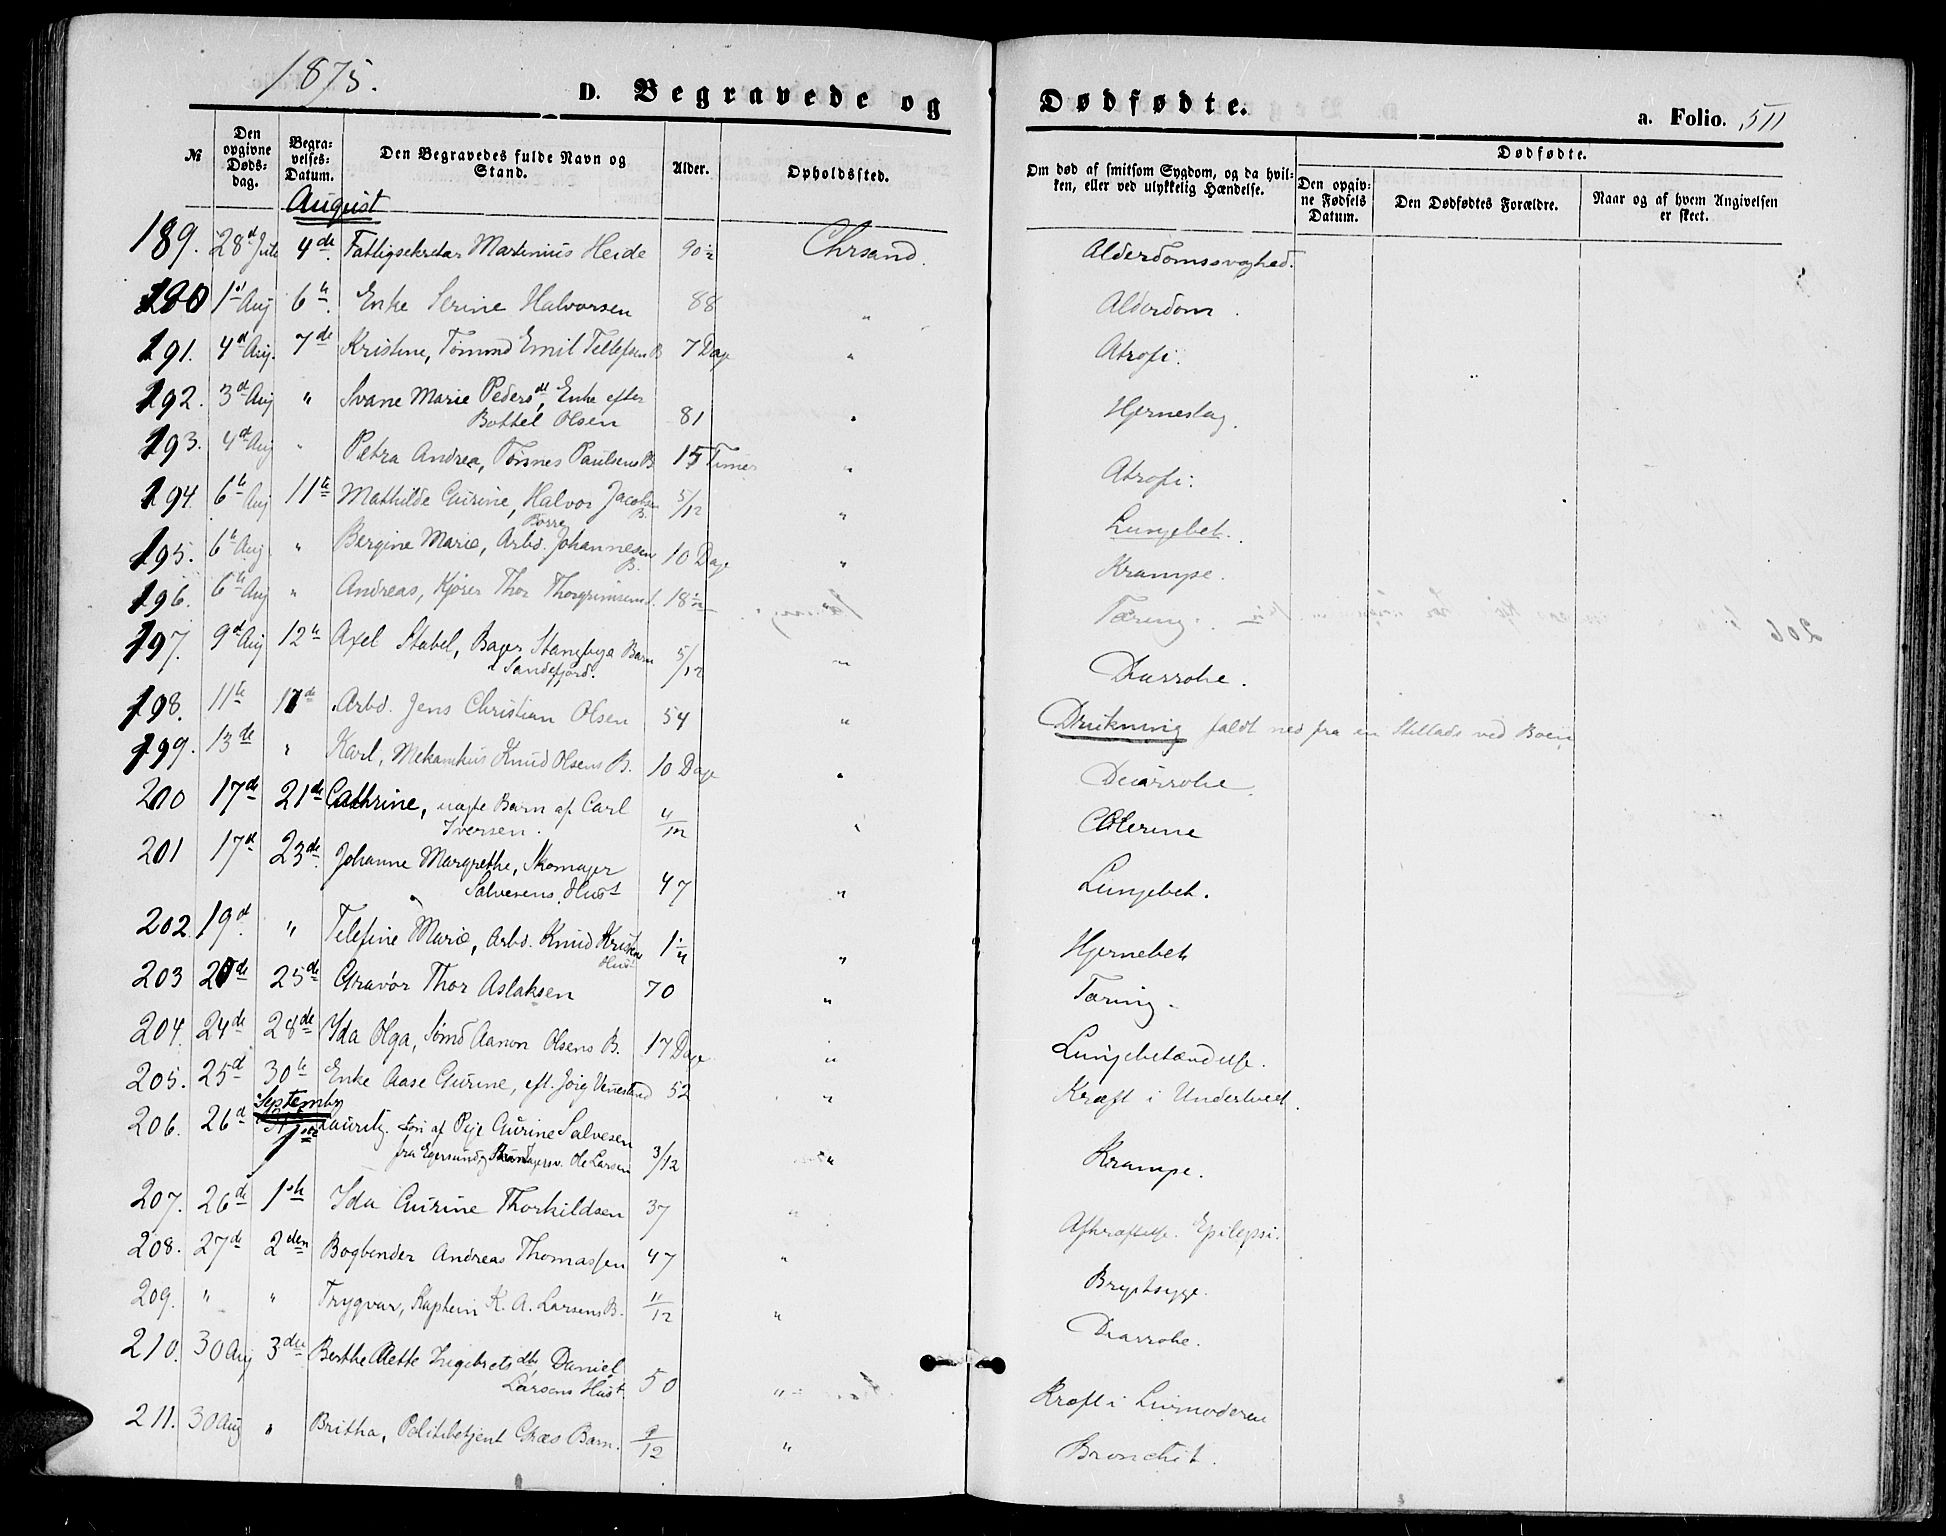 1875.
D. Begravede og Dødfødte.
a. Folio. 511
№
Den opgivne Døds-dag.
Begra-velses-Datum.
Den Begravedes fulde Navn og Stand.
Alder.
Opholdssted.
Om død af smitsom Sygdom, og da hvil-ken, eller ved ulykkelig Hændelse.
Dødfødte.
Den opgiv-ne Fødsels Datum.
Den Dødfødtes Forældre.
Naar og af hvem Angivelsen er skeet.
August
189. 28d Juli 4de Fattigsekretær Martinius Heide 90½ Chrsand. Alderdomssvaghed.
190 1st Aug 6te Enke Serine Halvorsen 88 " Alderdom.
191. 4d Aug. 7de Kristine, Tømmd Emil Tellefsen B 7 Dage " Atrofi.
192. 3d Aug " Svane Marie Pedersdt, Enke efter
Bottel Olsen 81 " Hjerneslag.
193. 4d Aug " Petra Andrea, Tørnes Paulsens B 15 Timer " Atrofi.
194. 6te Aug 11te Mathilde Gurine, Halvor Jacobsen B. 5/12 " Lungebet.
195. 6te Aug " Bergine Marie, Arbd. Johannesen B. 10 Dage " Krampe.
196. 6te Aug " Andreas, Kjører Thor Thorgrimsens 18½ Tæring.
197. 9d Aug 12te Axel Stabel, Bager Stangbye Barn
Sandefjord. 5/12 " Diarrohe.
198. 11te 17de Arbd. Jens Christian Olsen 54 " Drukning faldt ned fra en Stillads ved Boen
199. 13de " Karl, Mekanikus Knud Olsens B. 10 Dage " Diarrohe
200 17de 21de Cathrine, uægte Barn af Carl
Iversen. 4/12 " Colerine
201 17d 23de Johanne Margrethe, Skomager
Salvesens Hust 47 " Lungebet.
202. 19d " Telefine Marie, Arbd. Knud Kristen
Hust " Hjernebet
203 20de 25de Gravør Thor Aslaksen 70 " Tæring.
204. 24de 28de Ida Olga, Sømd Aanon Olsens B. 17 Dage " Lungebetændelse.
205. 25d 30te Enke Aase Gurine, eft. Jørg Vennestad 52 " Kræft i Underlivet.
September
206. 26d Lauritz. Søn af Pige Gurine Salvesen
fra Egersund og Ole Larsen 3/12 " Krampe.
207. 26de 1ste Ida Gurine Thorkildsen 37 " Afkræftelse. Epilepsi.
208. 27de 2den Bogbinder Andreas Thomassen 47 " Brystsyge.
209. " " Trygvar, Kaptein K. A. Larsens B. 11/12 " Diarrohe.
210. 30 Aug 3die Berthe Alette Ingebretsdtr, Daniel
Larsens Hust. 50 " Kræft i Livmoderen
211. 30 Aug " Britha, Politibetjent Gkæs Barn. 9/12 " Bronchit.